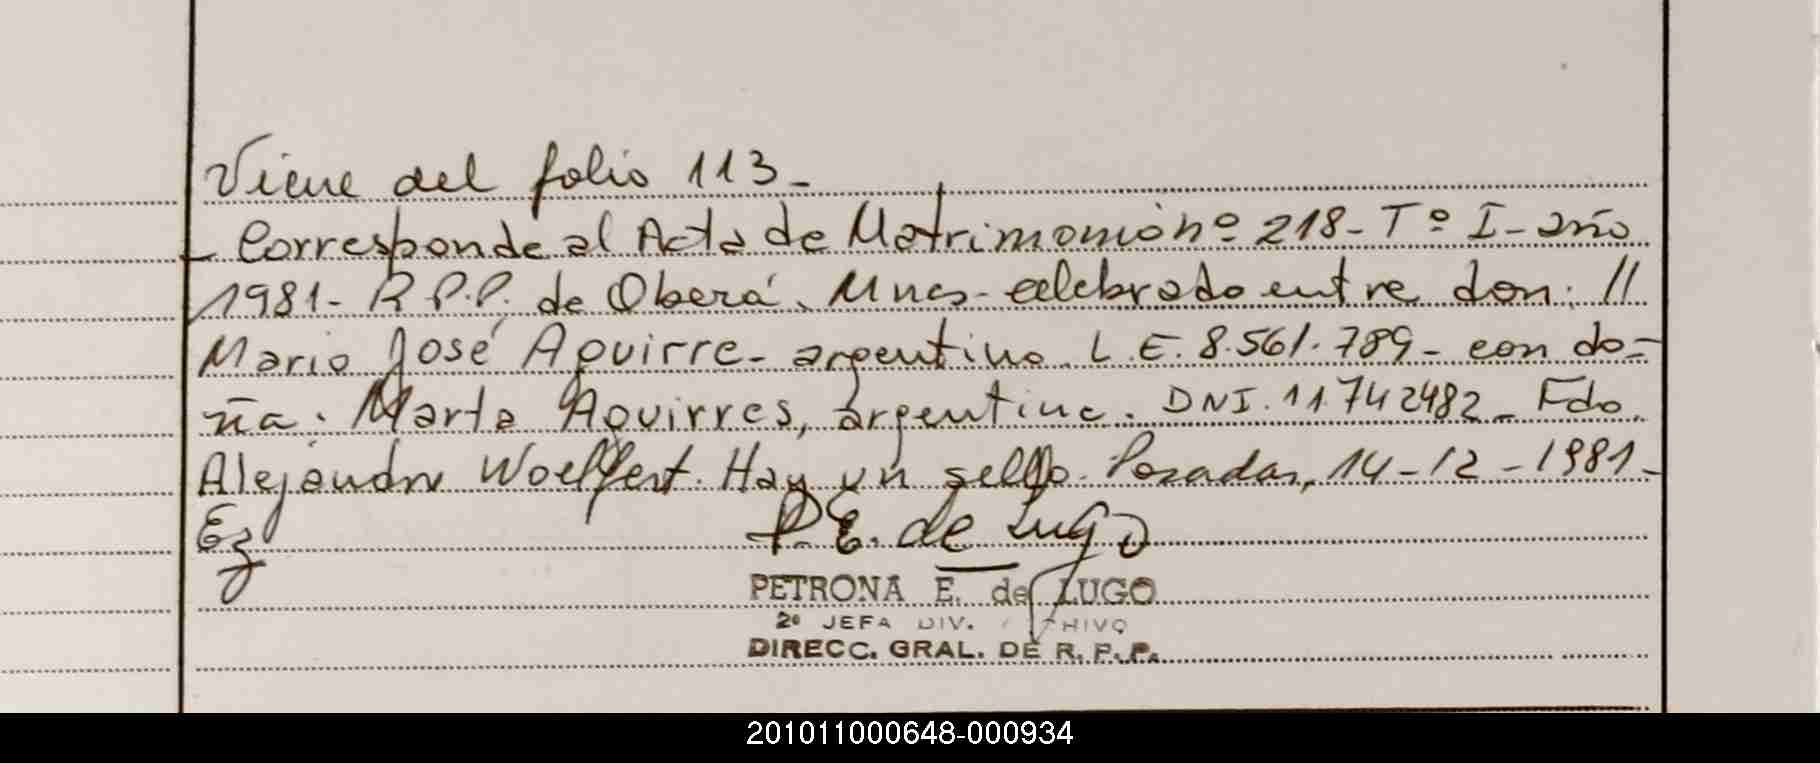 Viene del folio 113-
- Corresponde al Acta de Matrimonio nº 218- Tº I- año
1981- R.P.P. de Oberá, Mnes- celebrado entre don: //
Mario José Aguirre- argentino. L.E. 8.561.789- con do-
ña: Marta Aguirres, argentina. DNI. 11742482- Fdo.
Alejandro Woelffert. Hay un sello. Posadas, 14-12-1981-
Ez
P.E. de Lugo
PETRONA E. de LUGO
2º JEFA DIV.
DIRECC. GRAL. DE R. P. P.
201011000648-000934